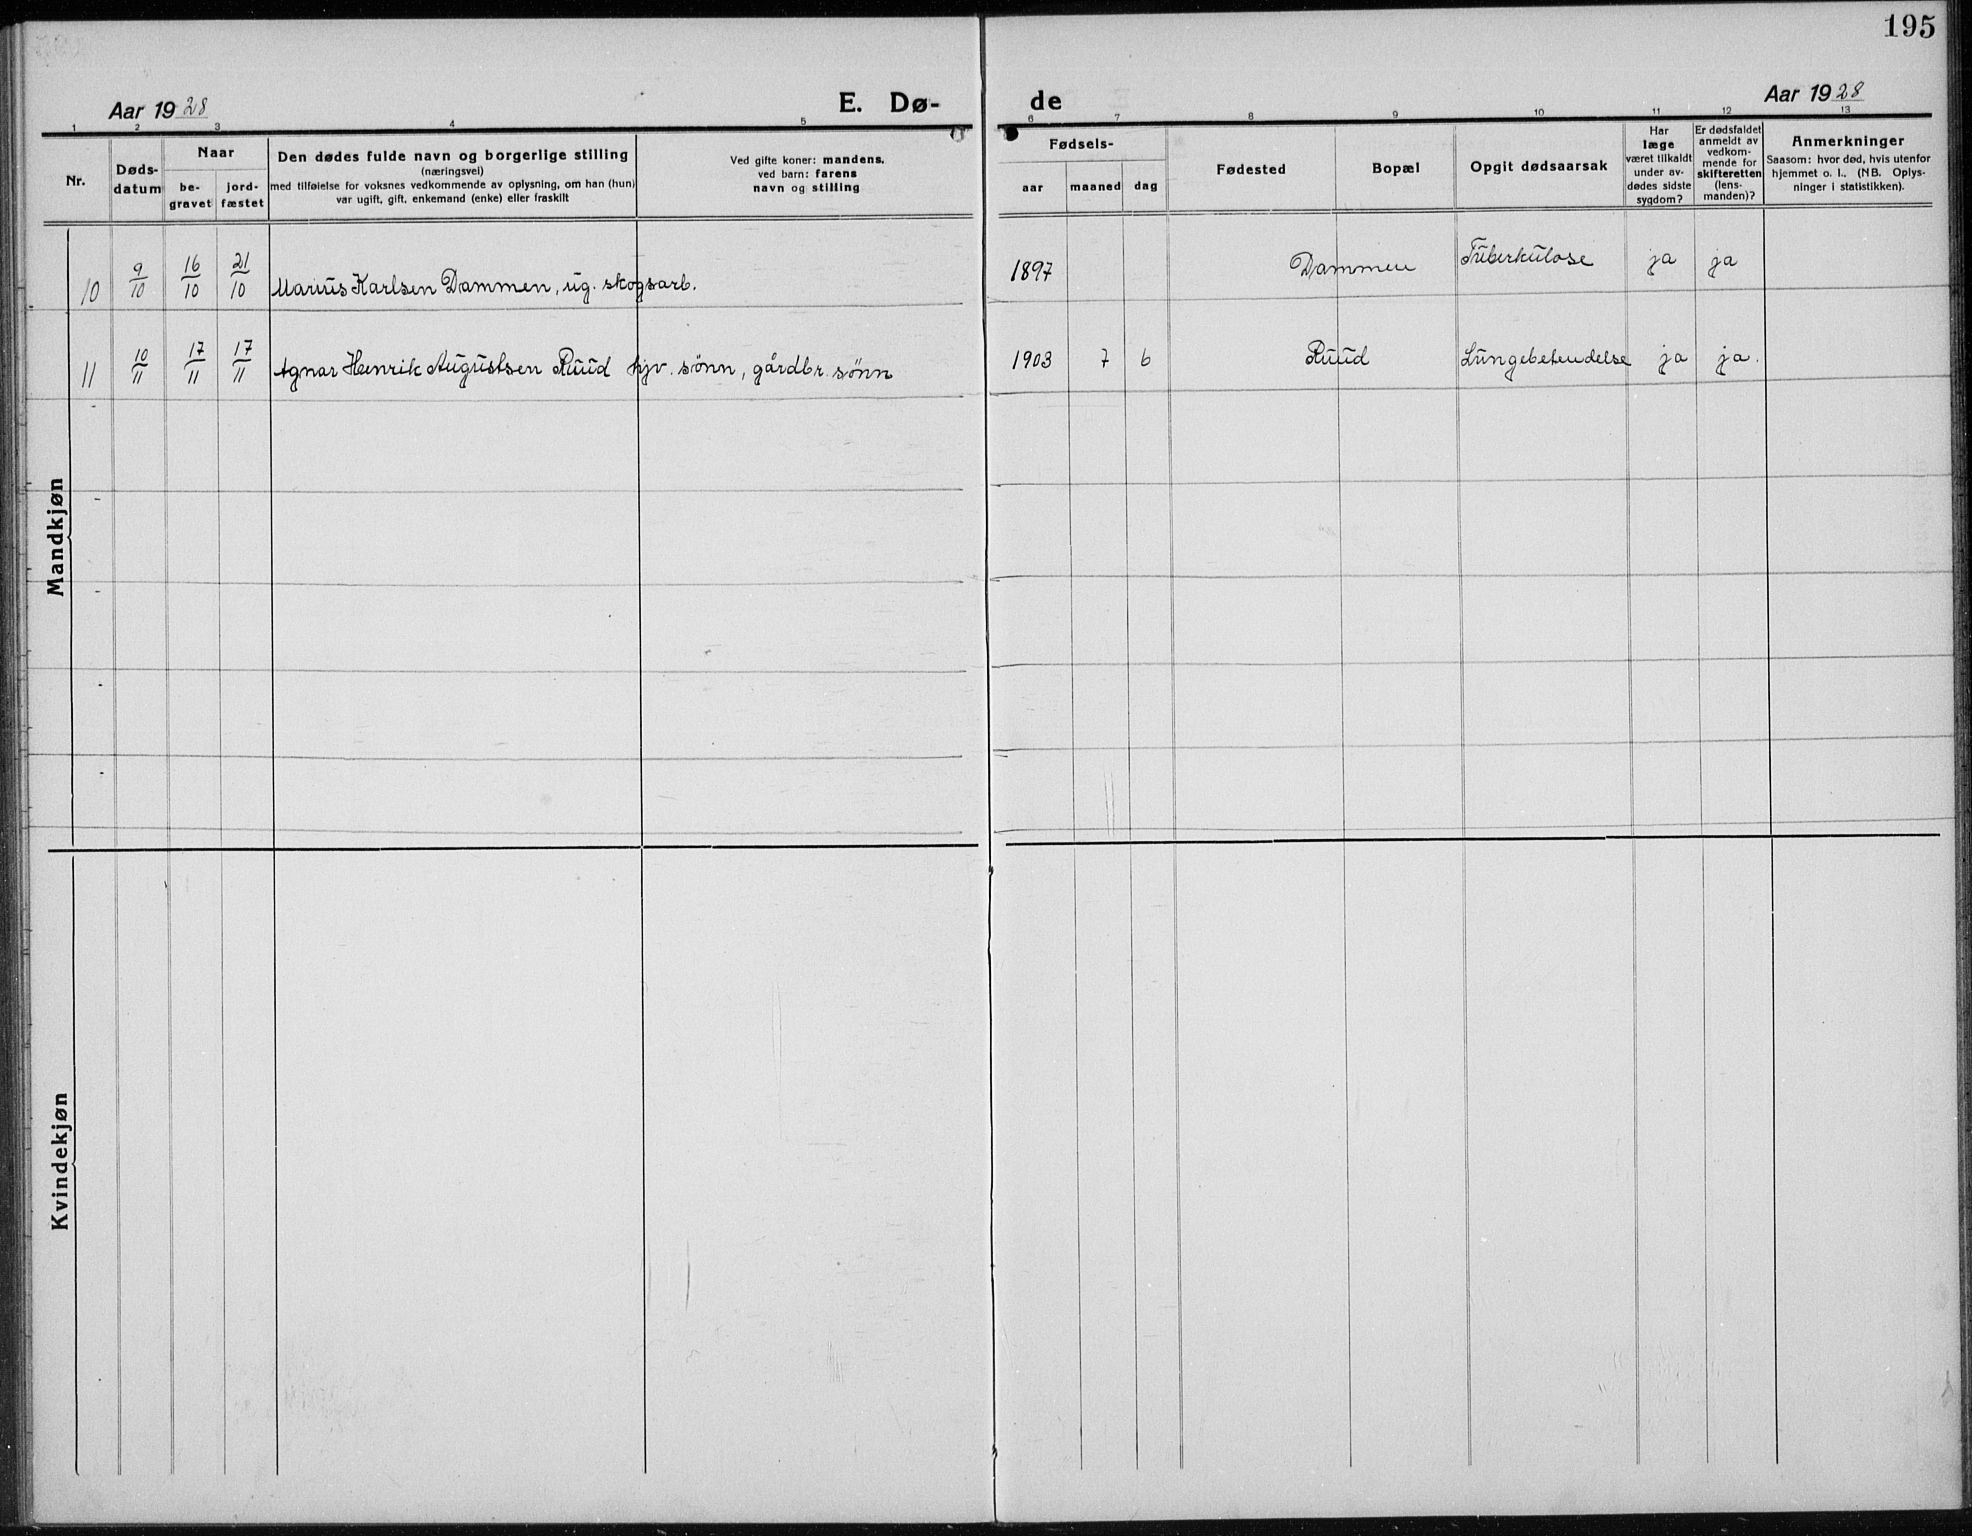 195
Aar 1928
E. Dø-
de
Aar 1928
1 2 3 4 5 6 7 8 9 10 11 12 13
Nr.
Døds-
datum
Naar
be-
gravet
jord-
fæstet
Den dødes fulde navn og borgerlige stilling
(næringsvei)
med tilføielse for voksnes vedkommende av oplysning, om han (hun)
var ugift, gift, enkemand (enke) eller fraskilt
Ved gifte koner: mandens.
ved barn: farens
navn og stilling
Fødsels-
aar
maaned
dag
Fødested
Bopæl
Opgit dødsaarsak
Har
læge
været tilkaldt
under av-
dødes sidste
sygdom?
Er dødsfaldet
anmeldt av
vedkom-
mende for
skifteretten
(lens-
manden)?
Anmerkninger
Saasom: hvor død, hvis utenfor
hjemmet o. l.. (NB. Oplys-
ninger i statistikken).
Mandkjøn
10 9/10 16/10 21/10 Marius Karlsen Dammen, ug. skogsarb. 1897 Dammen Tuberkulose ja ja
11 10/11 17/11 17/11 Agnar Henrik Augustsen Ruud hjv. sönn, gårdbr. sönn 1903 7 6 Ruud Lungebetendelse ja ja.
Kvindekjøn